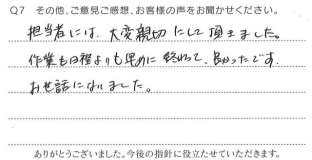 Q7 その他、ご意見ご感想、お客様の声をお聞かせください。
担当者には、大変親切にして頂きました。
作業も日程よりも早めに終わって、良かったです。
お世話になりました。
ありがとうございました。今後の指針に役立たせていただきます。